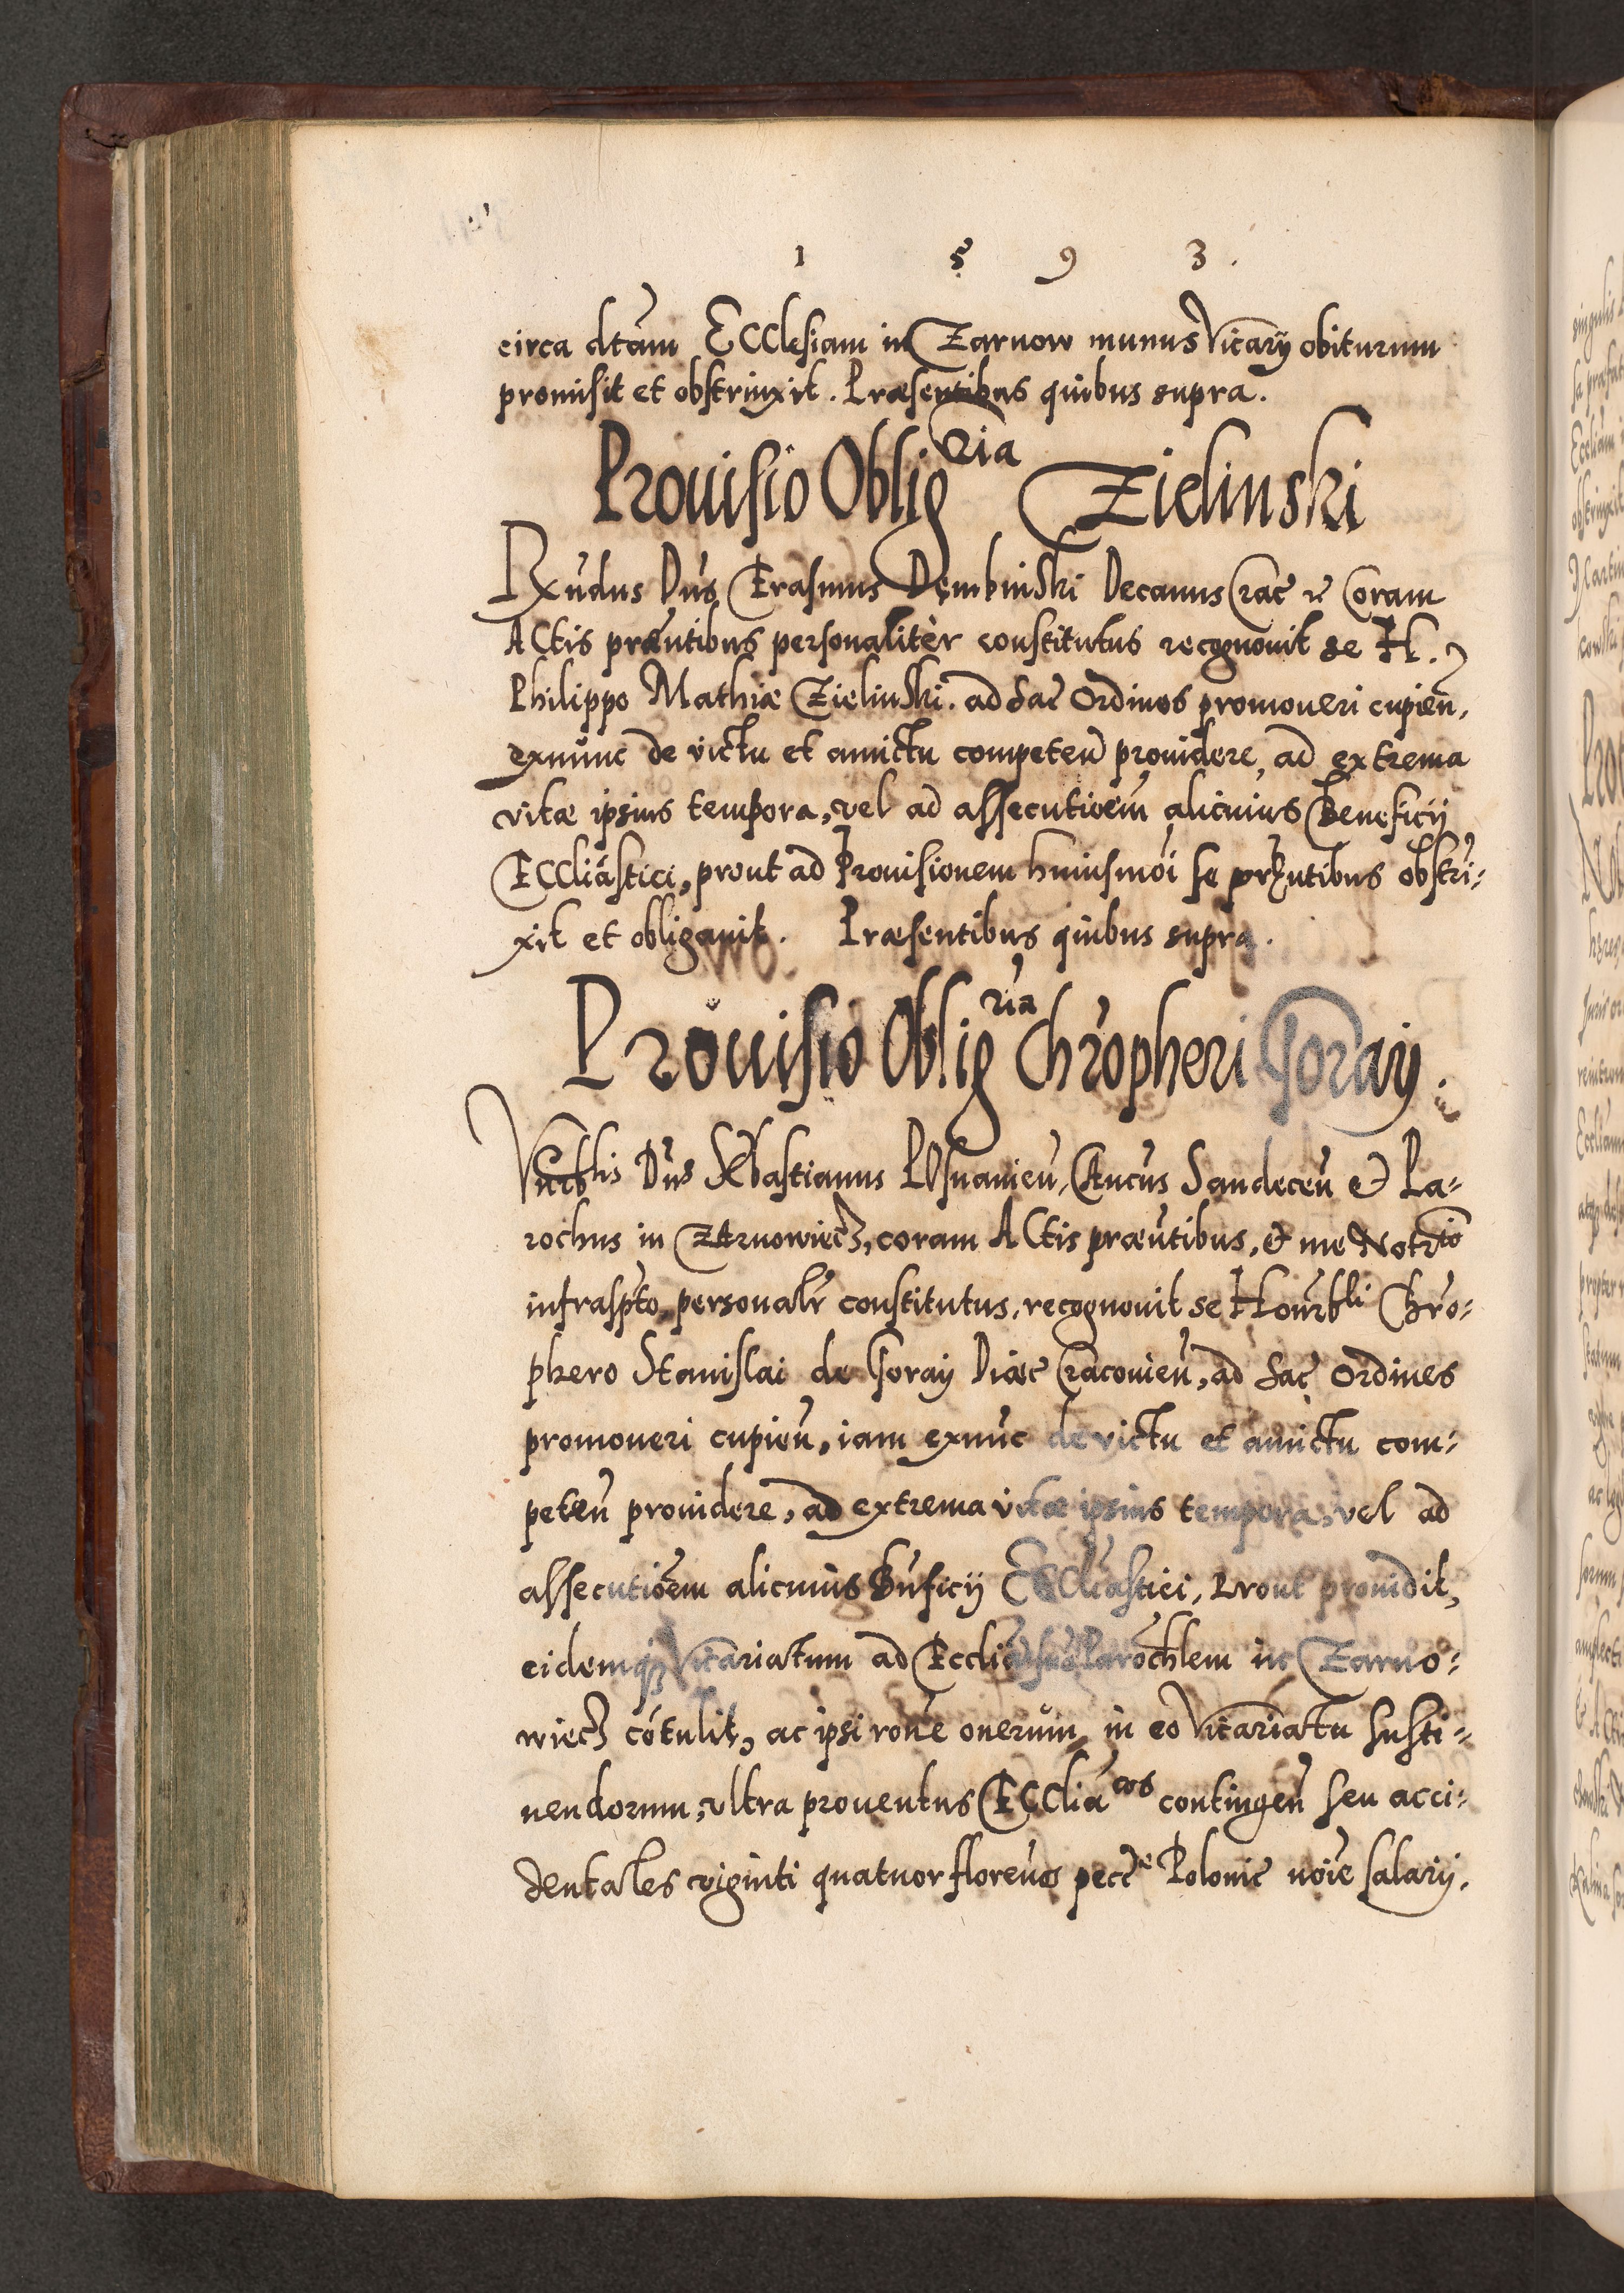 1 5 9 3.
circa dtam Ecclesiam in Zarnow munus Vicarÿ obiturum
promisit et obstrinxit. Præsentibus quibus supra.
Prouisio Oblig ria Zielinski
Rxndus Dns Erasmus Dembinski Decanus Crac coram
Actis præntibus personaliter constitutus recognouit se H.
Philippo Mathiæ Zielinski. ad Sac Ordines promoueri cupien,
exnunc de victu et amictu competen prouidere, ad extrema
vitæ ipsius tempora, vel ad assecutioem alicuius Beneficij
Eccliastici, prout ad Prouisionem huiusmoi se præntibus obstri-
xit et obligauit. Præsentibus quibus supra.
Prouisio Oblig ria Chropheri Goraÿ.
Vnrblis Dns Sebastianus Posnanien, Cancus Sandecen & Pa-
rochus in Zarnowiecz, coram Actis præntibus, & me Notrio
infraspto, personalr constitutus, recognouit se Honrbli Chro-
phero Stanislai de Goraÿ Diœc Cracouien, ad Sac Ordines
promoueri cupien, iam exnuc de victu et amictu com-
peten prouidere, ad extrema vitæ ipsius tempora, vel ad
assecutioem alicuius Bnficij Eccliastici, Prout prouidit,
eidemq Vicariatum ad Eccliam suã Parochlem in Zarno-
wiecz cótulit, ac ipsi rone onerum, in eo Vicariatu susti-
nendorum, vltra prouentus Eccliacos contingen seu acci-
dentales viginti quatuor florenos pecce Polonic noie salarij.